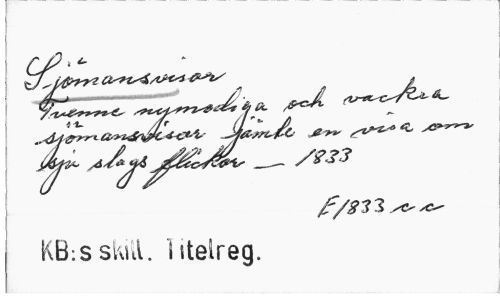 Sjömansvisor
Tvenne nymodiga och vackra
sjömansvisor jämte en visa om
sju slags flickor — 1833
E 1833 c c
KB:s skill. Titelreg.